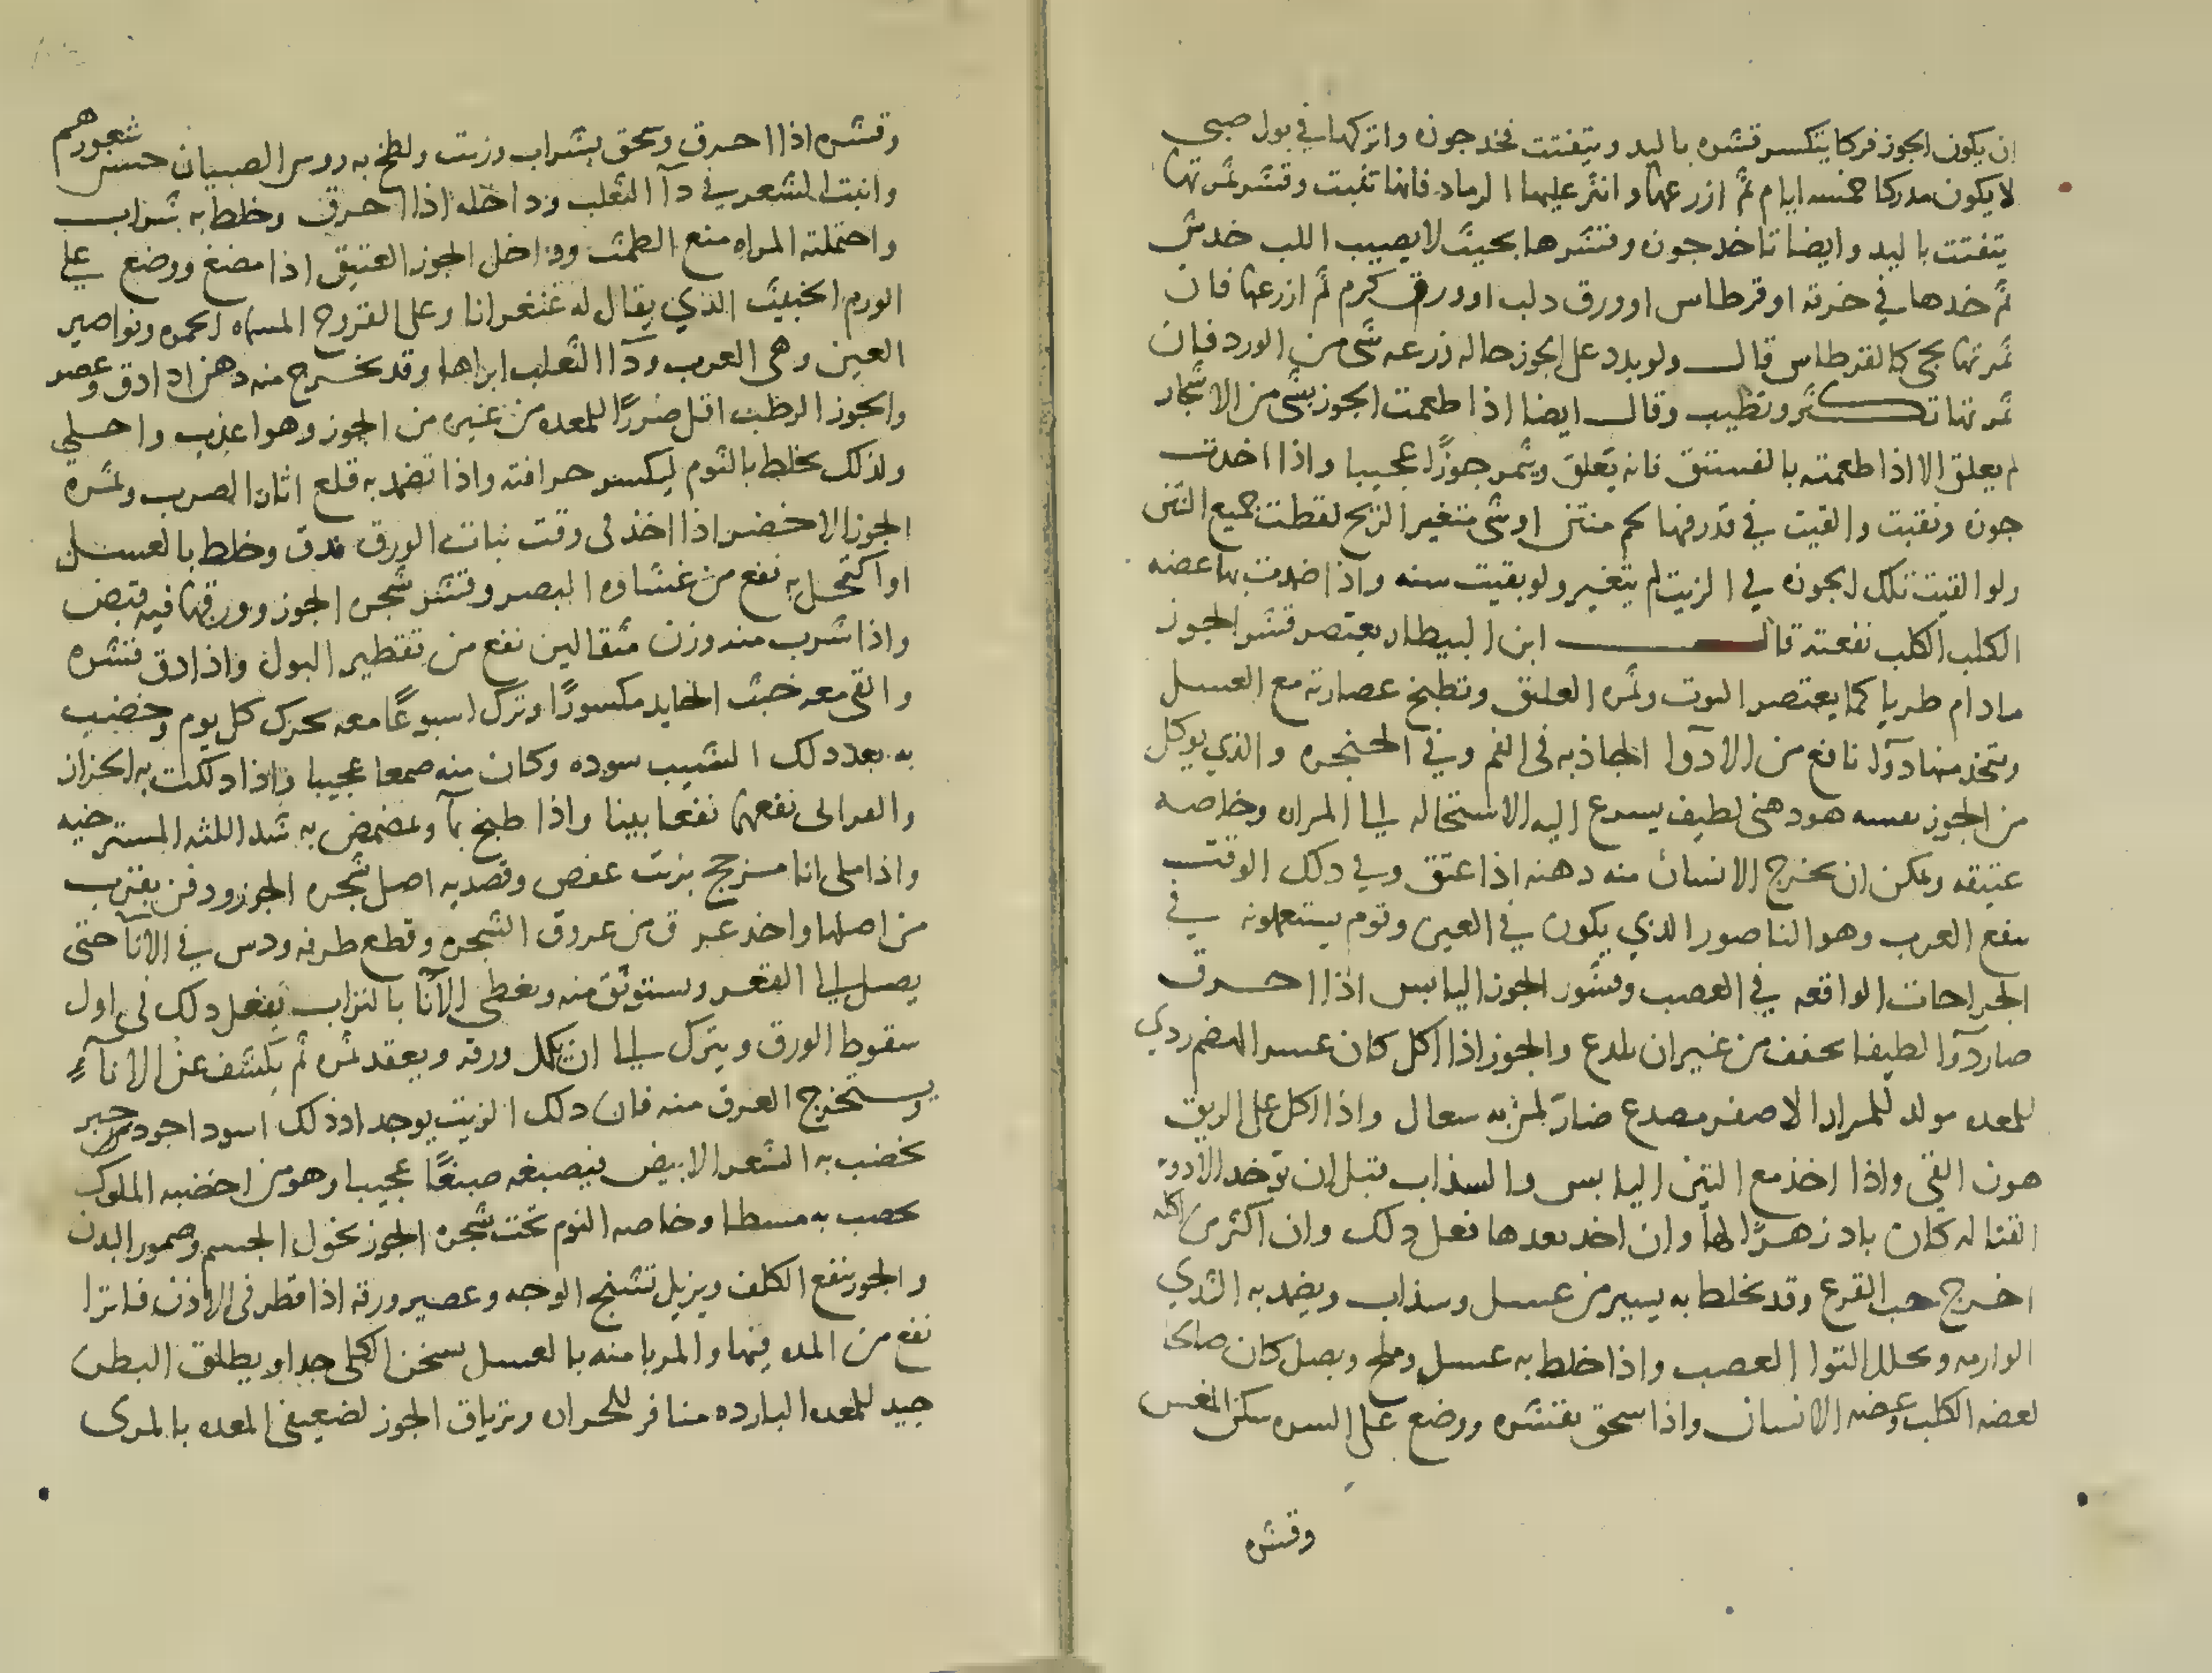 ان يكون الجوز فركا يتكسر قشره باليد ويتفتت فخد جوزه واتركها في بول صبي
لا يكون مدركا خمسه ايام ثم ازرعها وانثر عليها الرماد فانها تنبت وقشر ثمرتها
يتفتت باليد وايضا تاخد جوزه وتقشرها بحيث لا يصيب اللب خدش
ثم خدها في خرقه او قرطاس او ورق دلب او ورق كرم ثم ازرعها فان
ثمرتها يجي كالقرطاس قال ولو بدد على الجوز حاله زرعه شي من الورد فان
ثمرتها تكثر وتطيب وقال ايضا اذا طعمت الجوز بشي من الاشجار
لم يعلق الا اذا طعمته بالفستق فانه يعلق ويثمر جوزا عجيبا واذا اخدت
جوزه ونقبت والقيت في قدر فيها لحم منتن او شي متغير الريح لقطت جميع النتن
ولو القيت تلك الجوزه في الزيت لم يتغير ولو بقيت سنه واذا ضمدت بها عضه
الكلب الكلب نفعته قال ابن البيطار يعتصر قشر الجوز
مادام طريا كما يعتصر التوت وثمره العليق وتطبخ عصارته مع العسل
ويتخذ منها دوآ نافع من الادوآ الحادثه في الفم وفي الحنجره والذي يوكل
من الجوز نفسه هو دهني لطيف يسرع اليه الاستحاله الى المراره وخاصه
عتيقه ويمكن ان يخرج الانسان منه دهنه اذا عتق وفي دلك الوقت
ينفع الغرب وهو الناصور الذي يكون في العين وقوم يستعملونه في
الجراحات الواقعه في العصب وقشور الجوز اليابس اذا احرق
صار دوآ لطيفا يجفف من غير ان يلدع والجوز اذا اكل كان عسر الهضم ردي
للمعده مولد للمرار الاصفر مصدع ضار لمن به سعال واذا اكل على الريق
هون القي واذا اخذ مع التين اليابس والسذاب قبل ان توخد الادويه
القتاله كان باد زهرا لها وان اخد بعدها فعل دلك وان اكثر من اكله
اخرج حب القرع وقد يخلط به يسير من عسل وسذاب ويضمد به الثدي
الوارمه ويحلل التوا العصب واذا خلط به عسل وملح وبصل كان صالحا
لعضه الكلب وعضه الانسان واذا سحق بقشره ووضع على السره سكن المغس
وقشره
وقشره اذا احرق وسحق بشراب وزيت ولطخ به روس الصبيان حسن شعورهم
وانبت الشعر في دآ الثعلب وداخله اذا احرق وخلط به شراب
واحتملته المراه منع الطمث وداخل الجوز العتيق اذا مضغ ووضع على
الورم الخبيث الذي يقال له غنغرانا وعلى القروح المسماه الجمره ونواصير
العين وهي الغرب ودآ الثعلب ابراها وقد يخرج منه دهن اذا دق وعصر
والجوز الرطب اقل ضررا للمعده من غيره من الجوز وهو اعذب واحلى
ولذلك يخلط بالثوم ليكسر حرافته واذا تضمد به قلع اثار الضرب وثمره
الجوز الاخضر اذا اخذ في وقت نبات الورق فدق وخلط بالعسل
او اكتحل به نفع من غشاوه البصر وقشر شجره الجوز وورقها فيه قبض
واذا شرب منه وزن مثقالين نفع من تقطير البول واذا دق قشره
والقي معه خبث الحديد مكسورا وترك اسبوعا معه يحرك كل يوم وخضب
به بعد دلك الشيب سوده وكان منه صبغا عجيبا واذا دلكت به الحزاز
والقوابي نفعها نفعا بينا واذا طبخ بمآ وتمضمض به شد اللثه المسترخيه
واذا ملي انا مزجج بزيت عفص وقصد به اصل شجره الجوز ودفن بقرب
من اصلها واخد عرق من عروق الشجره وقطع طرفه ودس في الانآ حتى
يصل الى القعر ويستوثق منه ويغطى الآنا بالتراب يفعل دلك في اول
سقوط الورق ويترك الى ان يكمل ورقه ويعقد ثمره ثم يكشف عن الانآء
ويستخرج العرق منه فان دلك الزيت يوجد اذ ذلك اسود اجود من حبر
يخضب به الشعر الابيض فيصبغه صبغا عجيبا وهو من اخضبه الملوك
يخضب به مسطا وخاصه النوم تحت شجره الجوز نحول الجسم وضمور البدن
والجوز ينفع الكلف ويزيل تشنج الوجه وعصير ورقه اذا قطر في الاذن فاترا
نفع من المده فيها والمربا منه بالعسل يسخن الكلى جدا ويطلق البطن
جيد للمعده البارده منافر للحراره وترياق الجوز لضعيفي المعده بالمرى